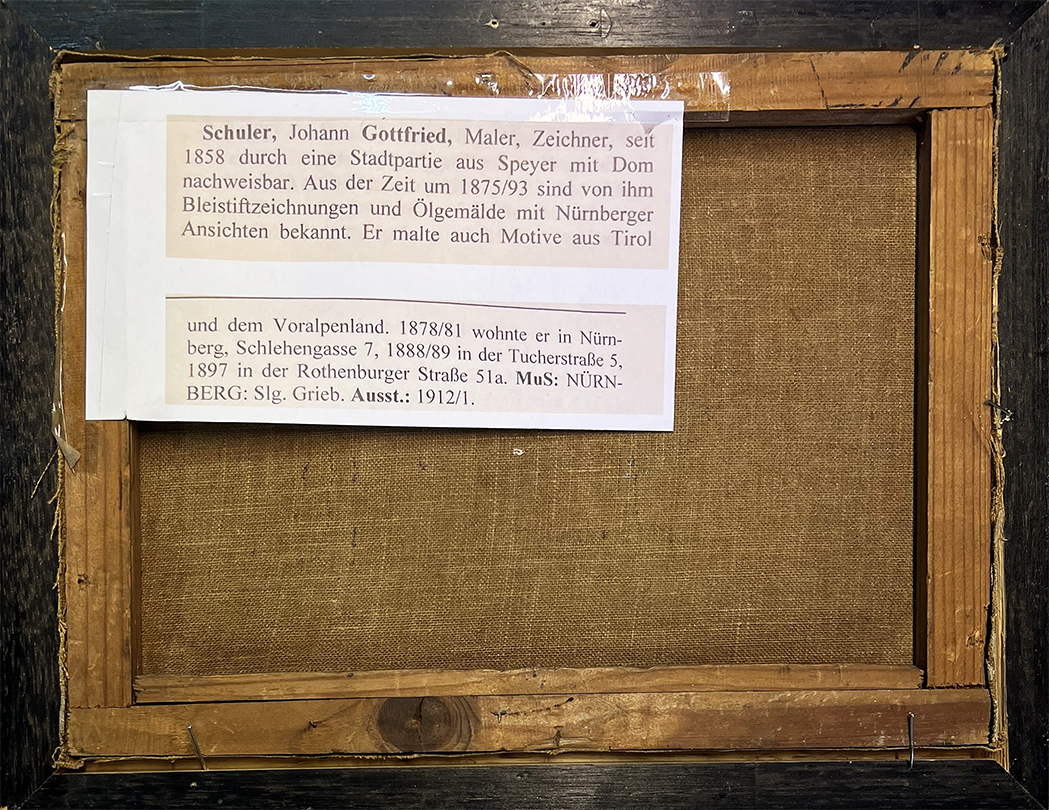 Schuler, Johann Gottfried, Maler, Zeichner, seit
1858 durch eine Stadtpartie aus Speyer mit Dom
nachweisbar. Aus der Zeit um 1875/93 sind von ihm
Bleistiftzeichnungen und Ölgemälde mit Nürnberger
Ansichten bekannt. Er malte auch Motive aus Tirol
und dem Voralpenland. 1878/81 wohnte er in Nürn-
berg, Schlehengasse 7, 1888/89 in der Tucherstraße 5,
1897 in der Rothenburger Straße 51a. MuS: NÜRN-
BERG: Slg. Grieb. Ausst.: 1912/1.